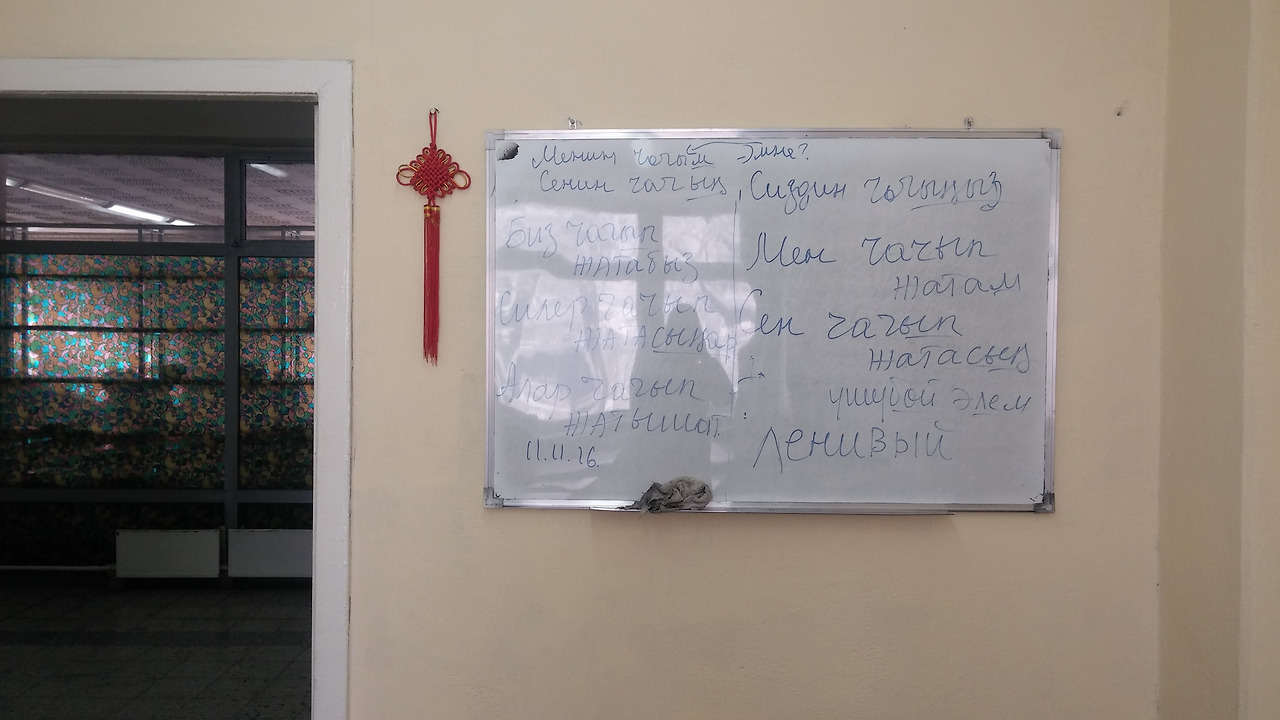 Менин чачым эмне?
Сенин чачың
Биз чачып
жатабыз
Силер чачып
жатасыңар
Алар чачып
жатышат
11.11.16.
Сиздин чачыңыз
Мен чачып
жатам
Сен чачып
жатасың
элем
Ленивый